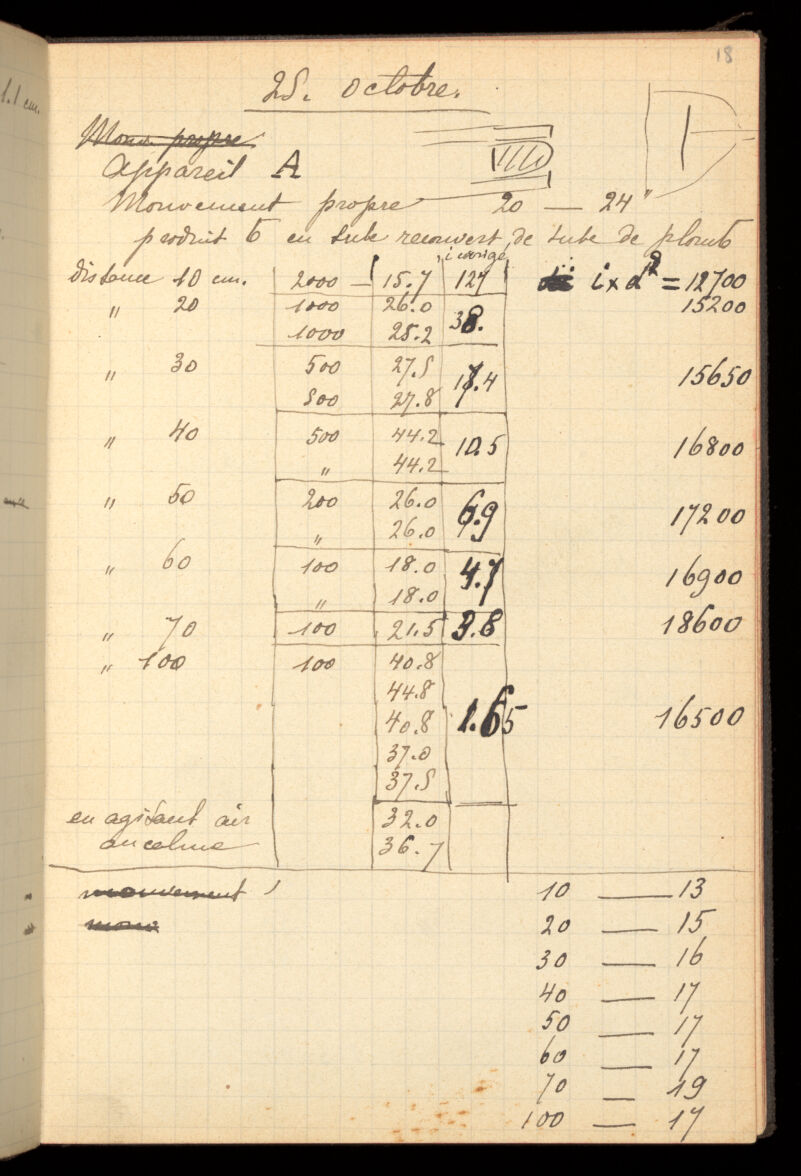 18
1.1 cm.
25. octobre.
Mouv. propre
appareil A
Mouvement propre 20 — 24"
produit 6 en tube recouvert de tube de plomb
i corrigé
distance 10 cm. 2000 — 15.7 127 i x d² = 12700
" 20 1000 26.0 38. 15200
1000 25.2
" 30 500 27.5 17.4 15650
500 27.8
" 40 500 44.2 10.5 16800
" 44.2
" 50 200 26.0 6.9 17200
" 26.0
" 60 100 18.0 4.7 16900
" 18.0
" 70 100 21.5 3.8 18600
" 100 100 40.8
44.8
40.8 1.65 16500
37.0
37.5
en agitant air 32.0
au calme 36.7
mouvement 10 — 13
mouv 20 — 15
30 — 16
40 — 17
50 — 17
60 — 17
70 — 19
100 — 17